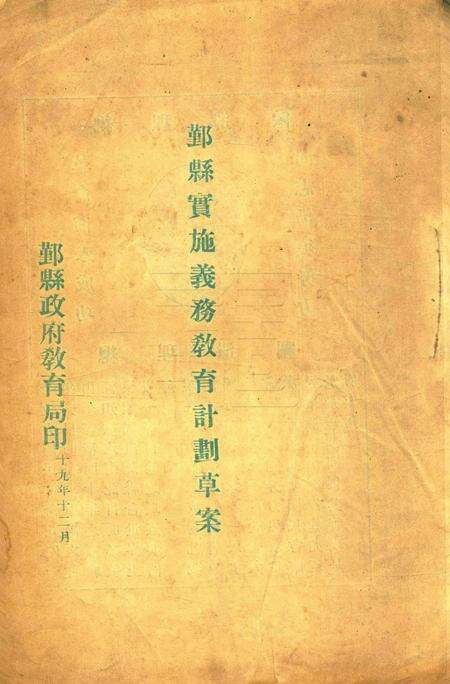 鄞縣實施義務教育計劃草案
鄞縣政府教育局印
十九年十二月